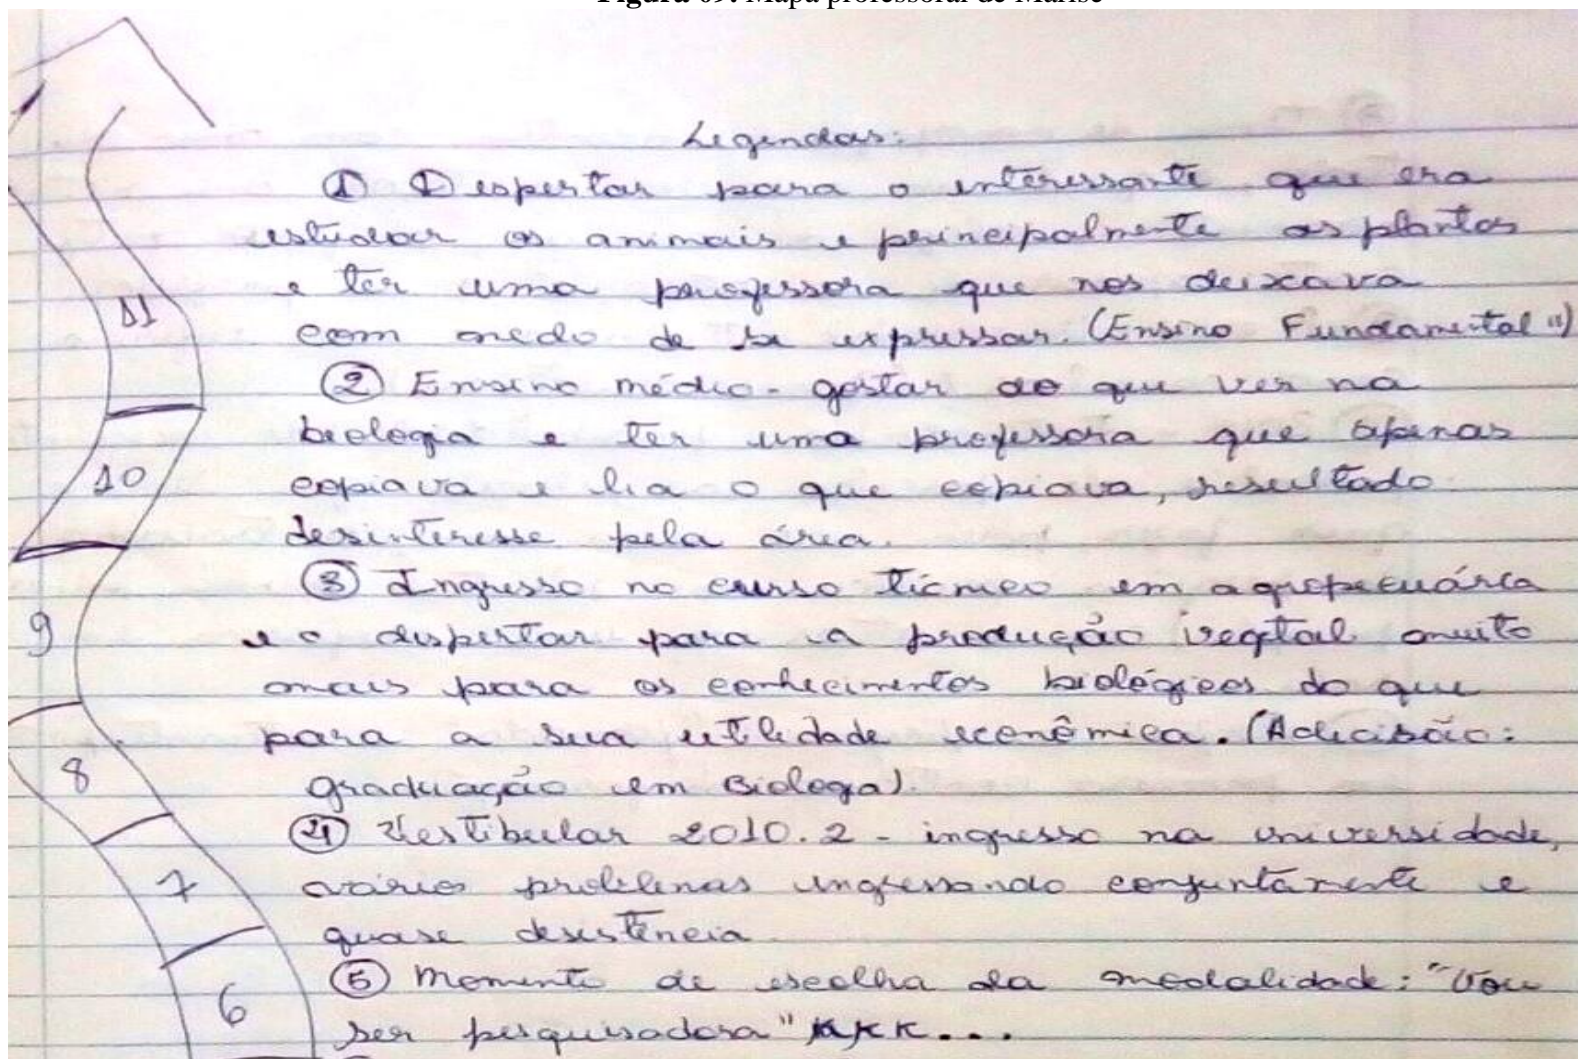 Figura 09: Mapa professoral de Marise
Legendas:
① Despertar para o interessante que era
estudar os animais e principalmente as plantas
e ter uma professora que nos deixava
com medo de se expressar. (Ensino Fundamental")
② Ensino médio - gostar do que ver na
biologia e ter uma professora que apenas
copiava e lia o que copiava, resultado
desinteresse pela área.
③ Ingresso no curso técnico em agropecuária
e o despertar para a produção vegtal muito
mais para os conhecimentos biológicos do que
para a sua utilidade econômica. (A decisão:
graduação em Biologa).
④ Vestibular 2010.2 - ingresso na universidade,
vários problemas ingressando conjuntamente e
quase desistência
⑤ Momento de escolha da modalidade: "Vou
ser pesquisadora" KKK...
11
10
9
8
7
6